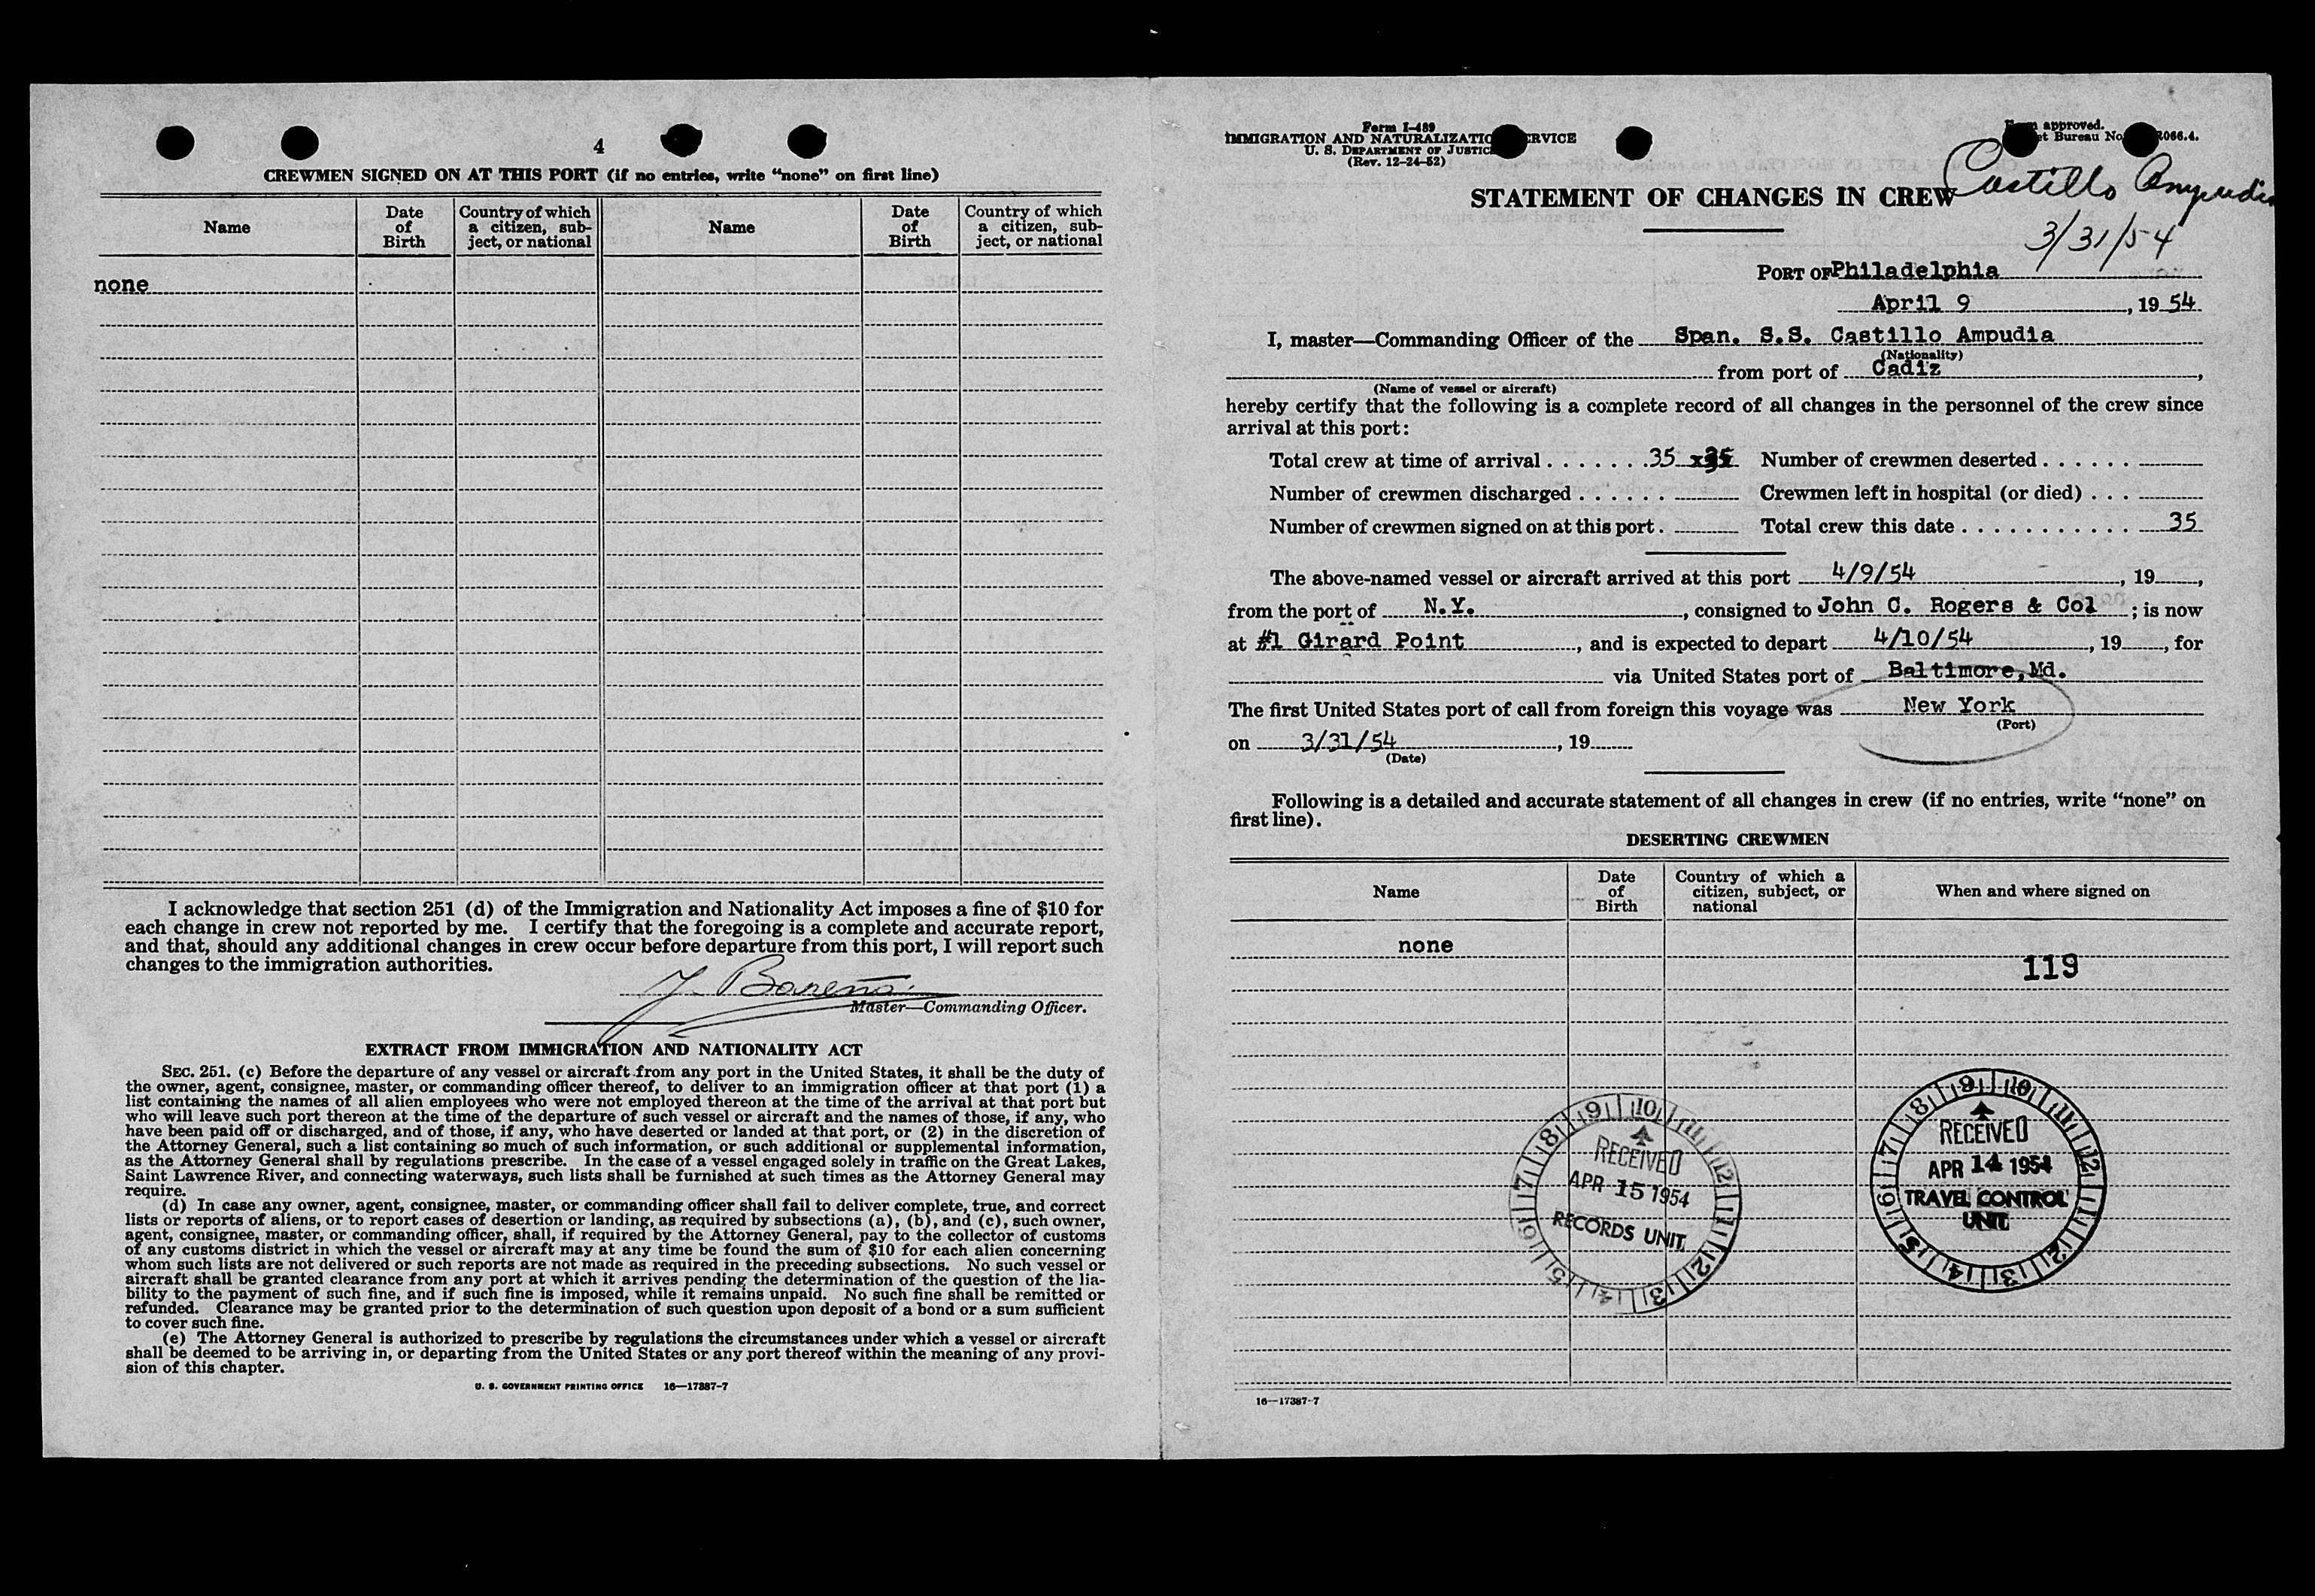 4
CREWMEN SIGNED ON AT THIS PORT (if no entries, write “none” on first line)
Name
Date of Birth
Country of which a citizen, subject, or national
Name
Date of Birth
Country of which a citizen, subject, or national
none
I acknowledge that section 251 (d) of the Immigration and Nationality Act imposes a fine of $10 for
each change in crew not reported by me. I certify that the foregoing is a complete and accurate report,
and that, should any additional changes in crew occur before departure from this port, I will report such
changes to the immigration authorities.
J. Bareño
Master—Commanding Officer.
EXTRACT FROM IMMIGRATION AND NATIONALITY ACT
SEC. 251. (c) Before the departure of any vessel or aircraft from any port in the United States, it shall be the duty of
the owner, agent, consignee, master, or commanding officer thereof, to deliver to an immigration officer at that port (1) a
list containing the names of all alien employees who were not employed thereon at the time of the arrival at that port but
who will leave such port thereon at the time of the departure of such vessel or aircraft and the names of those, if any, who
have been paid off or discharged, and of those, if any, who have deserted or landed at that port, or (2) in the discretion of
the Attorney General, such a list containing so much of such information, or such additional or supplemental information,
as the Attorney General shall by regulations prescribe. In the case of a vessel engaged solely in traffic on the Great Lakes,
Saint Lawrence River, and connecting waterways, such lists shall be furnished at such times as the Attorney General may
require.
(d) In case any owner, agent, consignee, master, or commanding officer shall fail to deliver complete, true, and correct
lists or reports of aliens, or to report cases of desertion or landing, as required by subsections (a), (b), and (c), such owner,
agent, consignee, master, or commanding officer, shall, if required by the Attorney General, pay to the collector of customs
of any customs district in which the vessel or aircraft may at any time be found the sum of $10 for each alien concerning
whom such lists are not delivered or such reports are not made as required in the preceding subsections. No such vessel or
aircraft shall be granted clearance from any port at which it arrives pending the determination of the question of the lia-
bility to the payment of such fine, and if such fine is imposed, while it remains unpaid. No such fine shall be remitted or
refunded. Clearance may be granted prior to the determination of such question upon deposit of a bond or a sum sufficient
to cover such fine.
(e) The Attorney General is authorized to prescribe by regulations the circumstances under which a vessel or aircraft
shall be deemed to be arriving in, or departing from the United States or any port thereof within the meaning of any provi-
sion of this chapter.
U. S. GOVERNMENT PRINTING OFFICE 16—17387-7
Form I-489
IMMIGRATION AND NATURALIZATION SERVICE
U. S. DEPARTMENT OF JUSTICE
(Rev. 12-24-52)
approved.
Bureau No. 066.4.
Castillo Ampudia
3/31/54
STATEMENT OF CHANGES IN CREW
PORT OF Philadelphia
April 9, 19 54
I, master—Commanding Officer of the Span. S.S. Castillo Ampudia
(Nationality)
from port of Cadiz,
(Name of vessel or aircraft)
hereby certify that the following is a complete record of all changes in the personnel of the crew since
arrival at this port:
Total crew at time of arrival . . . . . . . 35 x35 Number of crewmen deserted . . . . . .
Number of crewmen discharged . . . . . . Crewmen left in hospital (or died) . . .
Number of crewmen signed on at this port . Total crew this date . . . . . . . . . . . . 35
The above-named vessel or aircraft arrived at this port 4/9/54, 19 ,
from the port of N.Y., consigned to John C. Rogers & Col ; is now
at #1 Girard Point, and is expected to depart 4/10/54, 19 , for
via United States port of Baltimore,Md.
The first United States port of call from foreign this voyage was New York
(Port)
on 3/31/54, 19
(Date)
Following is a detailed and accurate statement of all changes in crew (if no entries, write “none” on
first line).
DESERTING CREWMEN
Name
Date of Birth
Country of which a citizen, subject, or national
When and where signed on
none
119
9 10 11 12 1 2 3 4 5 6 7 8
RECEIVED
APR 15 1954
RECORDS UNIT
9 10 11 12 1 2 3 4 5 6 7 8
RECEIVED
APR 14 1954
TRAVEL CONTROL
UNIT
16—17387-7